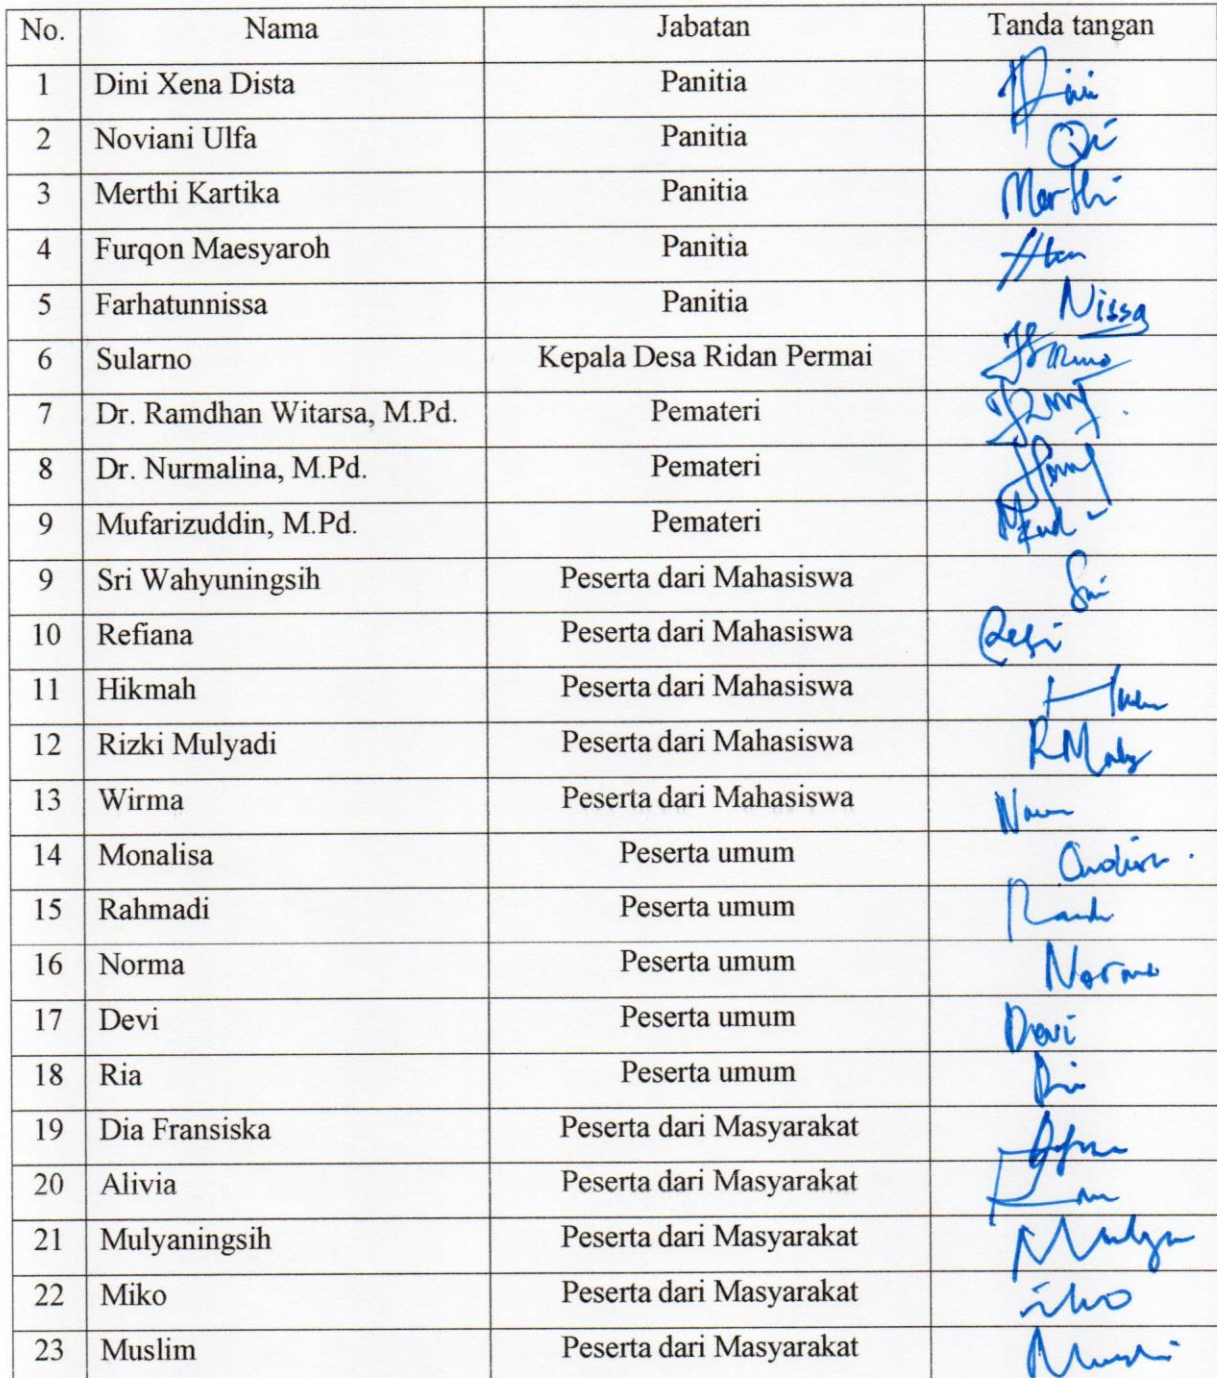 No. Nama Jabatan Tanda tangan
1 Dini Xena Dista Panitia Dini
2 Noviani Ulfa Panitia
3 Merthi Kartika Panitia Merthi
4 Furqon Maesyaroh Panitia
5 Farhatunnissa Panitia Nissa
6 Sularno Kepala Desa Ridan Permai
7 Dr. Ramdhan Witarsa, M.Pd. Pemateri
8 Dr. Nurmalina, M.Pd. Pemateri
9 Mufarizuddin, M.Pd. Pemateri
9 Sri Wahyuningsih Peserta dari Mahasiswa Sri
10 Refiana Peserta dari Mahasiswa Refi
11 Hikmah Peserta dari Mahasiswa
12 Rizki Mulyadi Peserta dari Mahasiswa
13 Wirma Peserta dari Mahasiswa
14 Monalisa Peserta umum
15 Rahmadi Peserta umum
16 Norma Peserta umum Norma
17 Devi Peserta umum Devi
18 Ria Peserta umum
19 Dia Fransiska Peserta dari Masyarakat
20 Alivia Peserta dari Masyarakat
21 Mulyaningsih Peserta dari Masyarakat
22 Miko Peserta dari Masyarakat
23 Muslim Peserta dari Masyarakat